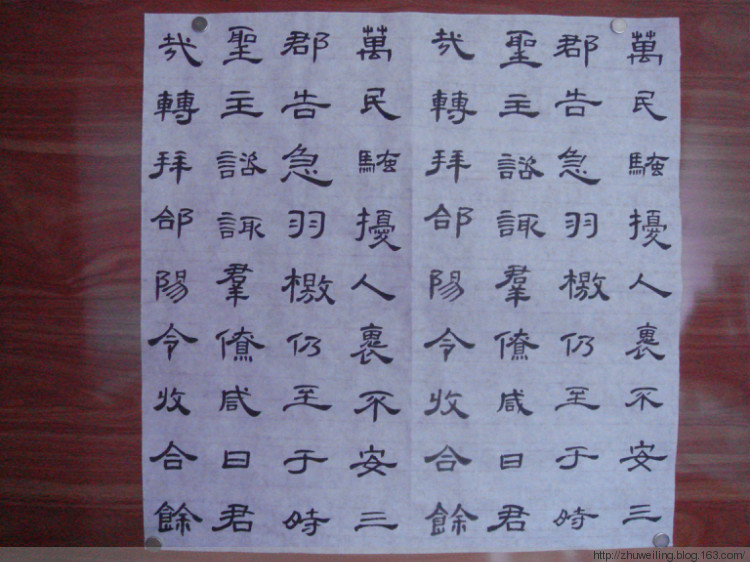 萬民騷擾人褱不安三
郡告急羽檄仍至于時
聖主諮諏羣僚咸曰君
哉轉拜郃陽令收合餘
萬民騷擾人褱不安三
郡告急羽檄仍至于時
聖主諮諏羣僚咸曰君
哉轉拜郃陽令收合餘
http://zhuweiling.blog.163.com/